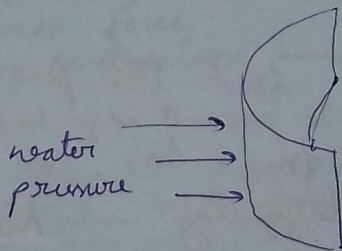 water
pressure